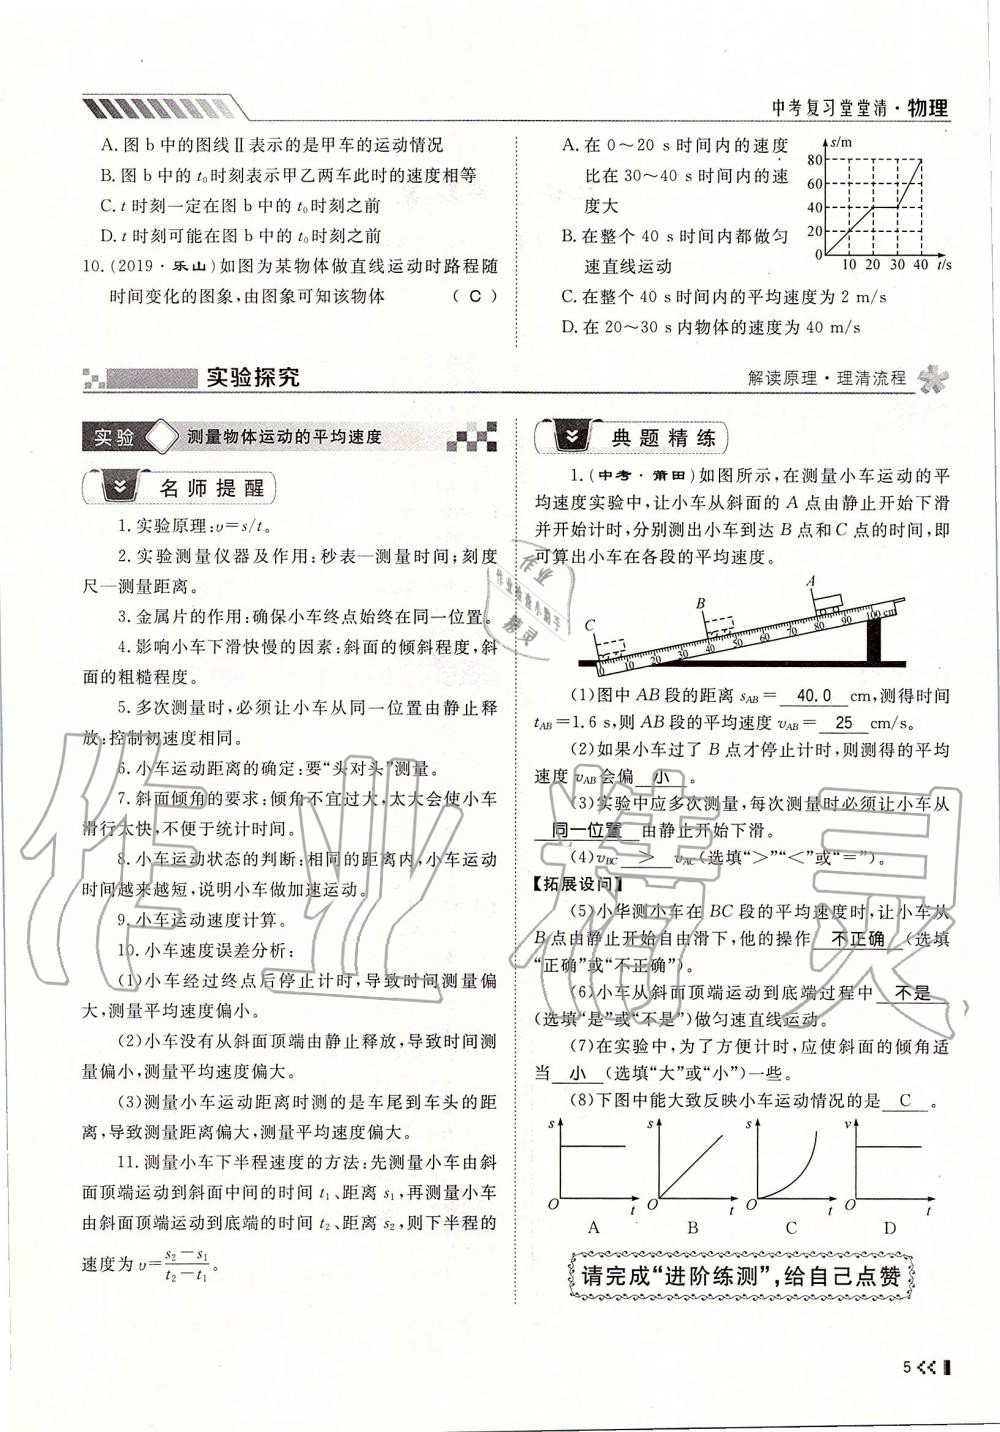 中考复习堂堂清·物理
A.图b中的图线Ⅱ表示的是甲车的运动情况
B.图b中的t₀时刻表示甲乙两车此时的速度相等
C.t时刻一定在图b中的t₀时刻之前
D.t时刻可能在图b中的t₀时刻之前
10.(2019·乐山)如图为某物体做直线运动时路程随
时间变化的图象,由图象可知该物体 ( C )
A.在0～20 s时间内的速度
比在30～40 s时间内的速
度大
B.在整个40 s时间内都做匀
速直线运动
C.在整个40 s时间内的平均速度为2 m/s
D.在20～30 s内物体的速度为40 m/s
s/m
80
60
40
20
0
10 20 30 40 t/s
实验探究
解读原理·理清流程
实验 测量物体运动的平均速度
名师提醒
1.实验原理:υ=s/t。
2.实验测量仪器及作用:秒表—测量时间;刻度
尺—测量距离。
3.金属片的作用:确保小车终点始终在同一位置。
4.影响小车下滑快慢的因素:斜面的倾斜程度,斜
面的粗糙程度。
5.多次测量时,必须让小车从同一位置由静止释
放:控制初速度相同。
6.小车运动距离的确定:要“头对头”测量。
7.斜面倾角的要求:倾角不宜过大,太大会使小车
滑行太快,不便于统计时间。
8.小车运动状态的判断:相同的距离内,小车运动
时间越来越短,说明小车做加速运动。
9.小车运动速度计算。
10.小车速度误差分析:
(1)小车经过终点后停止计时,导致时间测量偏
大,测量平均速度偏小。
(2)小车没有从斜面顶端由静止释放,导致时间测
量偏小,测量平均速度偏大。
(3)测量小车运动距离时测的是车尾到车头的距
离,导致测量距离偏大,测量平均速度偏大。
11.测量小车下半程速度的方法:先测量小车由斜
面顶端运动到斜面中间的时间t₁、距离s₁,再测量小车
由斜面顶端运动到底端的时间t₂、距离s₂,则下半程的
速度为υ=(s₂-s₁)/(t₂-t₁)。
典题精练
1.(中考·莆田)如图所示,在测量小车运动的平
均速度实验中,让小车从斜面的A点由静止开始下滑
并开始计时,分别测出小车到达B点和C点的时间,即
可算出小车在各段的平均速度。
A
B
C
0 10 20 30 40 50 60 70 80 90 100 cm
(1)图中AB段的距离sAB= 40.0 cm,测得时间
tAB=1.6 s,则AB段的平均速度υAB= 25 cm/s。
(2)如果小车过了B点才停止计时,则测得的平均
速度υAB会偏 小 。
(3)实验中应多次测量,每次测量时必须让小车从
同一位置 由静止开始下滑。
(4)υBC > υAC(选填“>”“<”或“=”)。
【拓展设问】
(5)小华测小车在BC段的平均速度时,让小车从
B点由静止开始自由滑下,他的操作 不正确 (选填
“正确”或“不正确”)。
(6)小车从斜面顶端运动到底端过程中 不是
(选填“是”或“不是”)做匀速直线运动。
(7)在实验中,为了方便计时,应使斜面的倾角适
当 小 (选填“大”或“小”)一些。
(8)下图中能大致反映小车运动情况的是 C 。
s s s v
O t O t O t O t
A B C D
请完成“进阶练测”,给自己点赞
5
作业精灵
作业
作业检查小助手
精灵